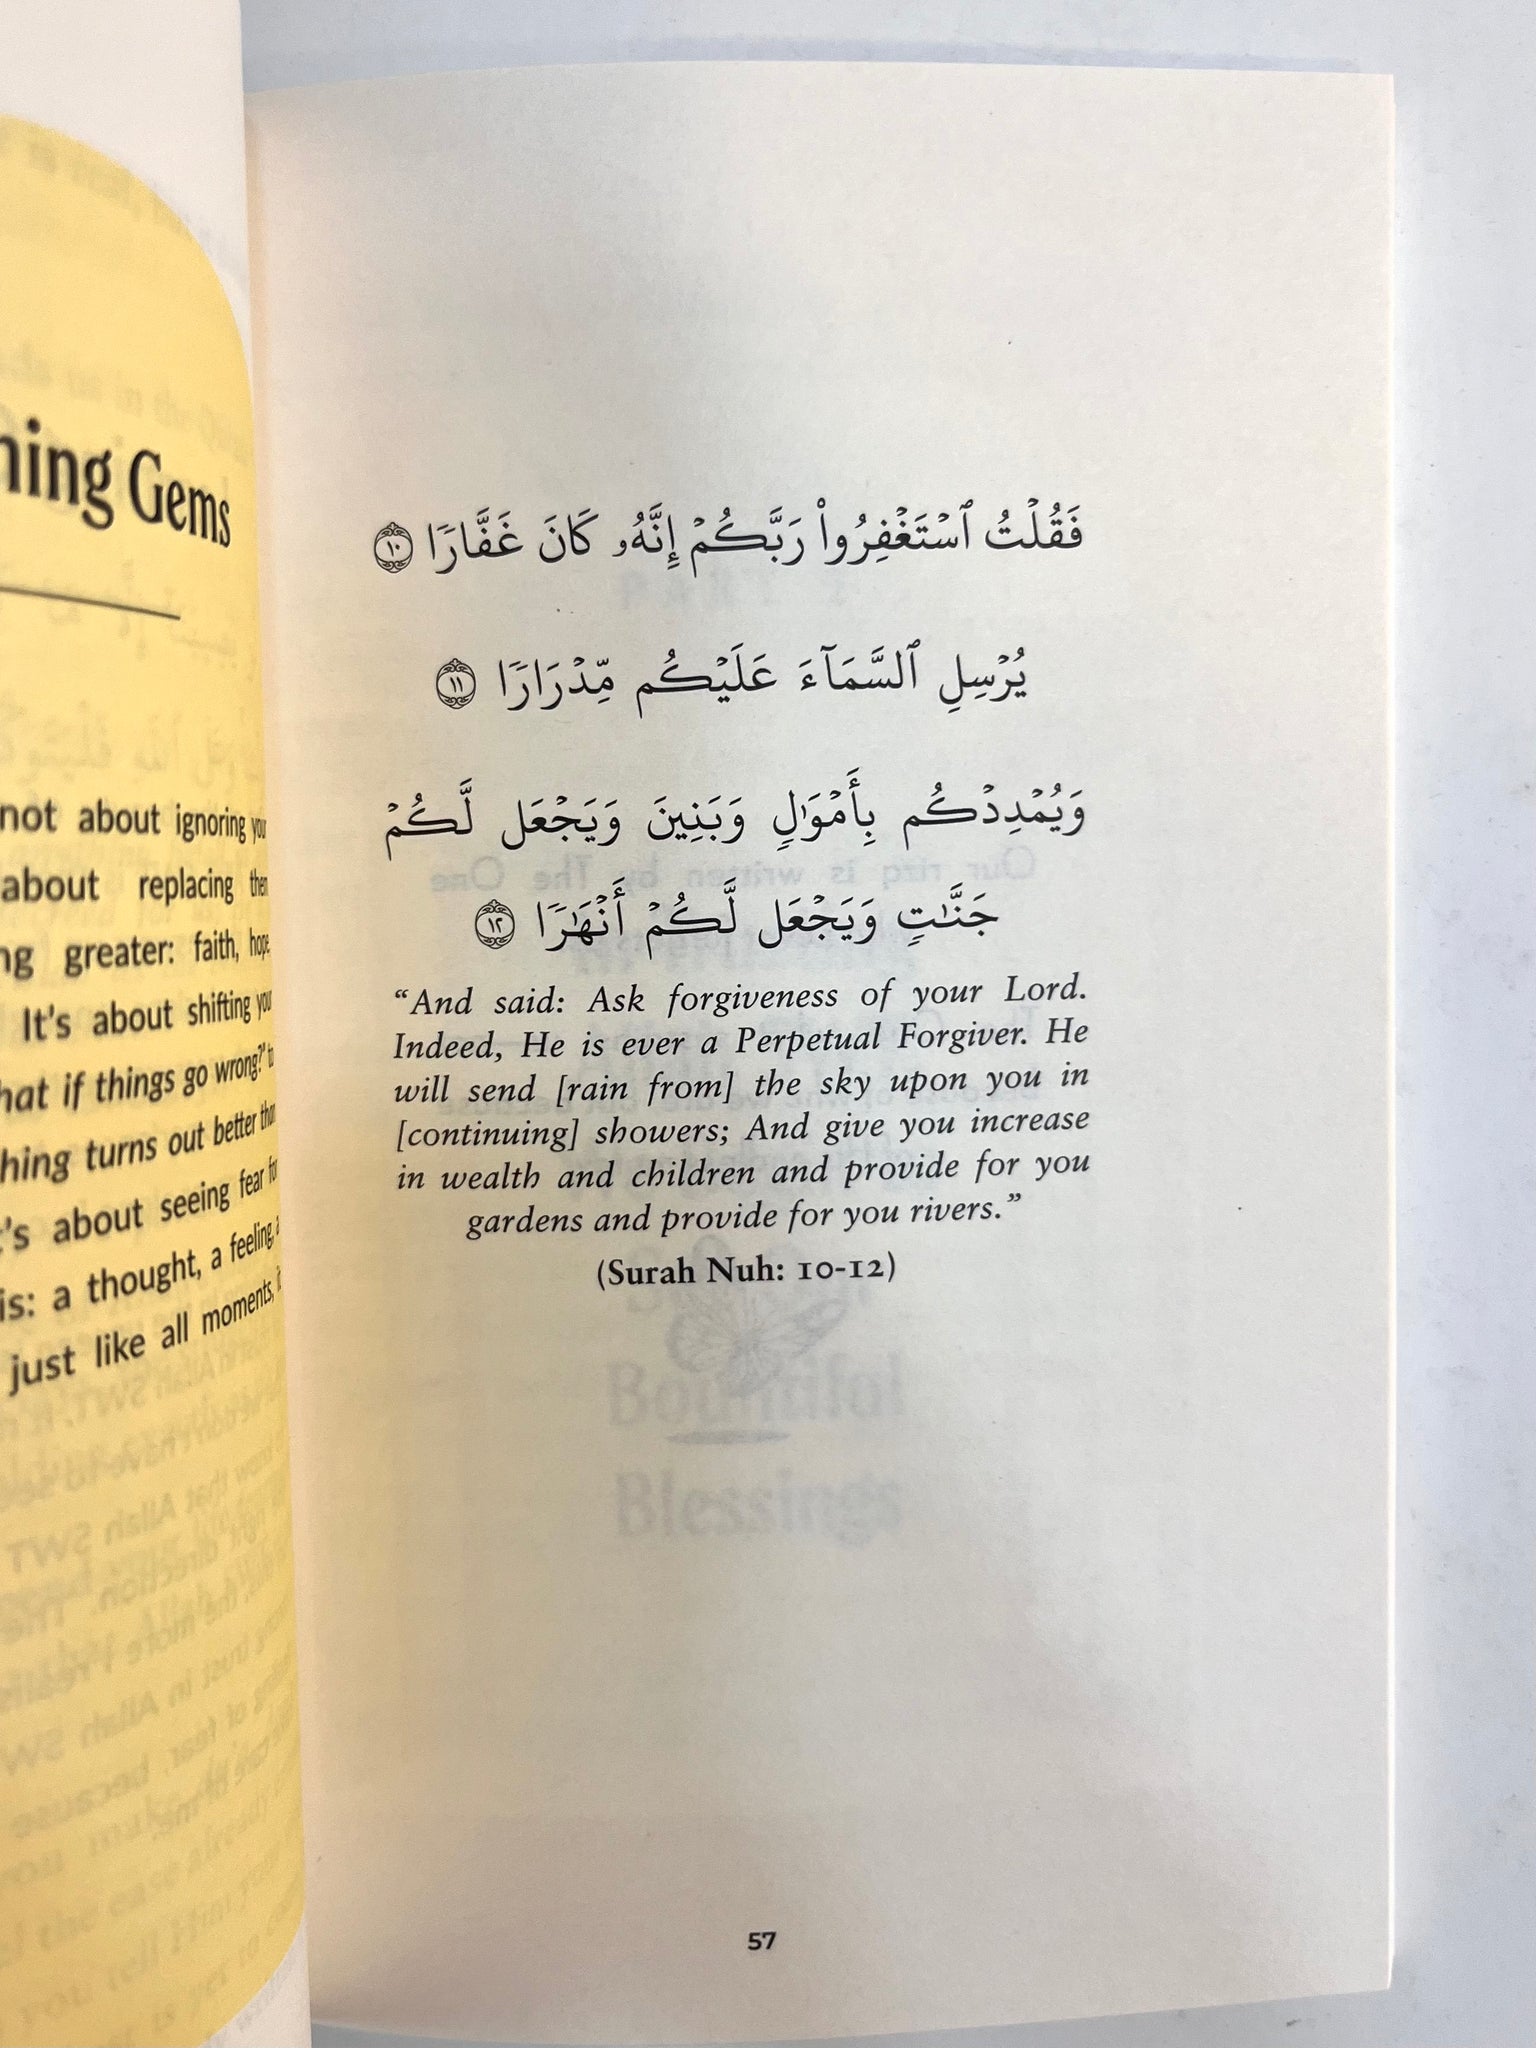 ning Gems
not about ignoring you
about replacing
ng greater: faith, hope
It's about shifting you
hat if things go wrong?"
hing turns out better than
t's about seeing fear
is: a thought, a feeling,
just like all moments,
فَقُلْتُ ٱسْتَغْفِرُوا۟ رَبَّكُمْ إِنَّهُۥ كَانَ غَفَّارًا ١٠
يُرْسِلِ ٱلسَّمَآءَ عَلَيْكُم مِّدْرَارًا ١١
وَيُمْدِدْكُم بِأَمْوَٰلٍ وَبَنِينَ وَيَجْعَل لَّكُمْ
جَنَّـٰتٍ وَيَجْعَل لَّكُمْ أَنْهَـٰرًا ١٢
“And said: Ask forgiveness of your Lord.
Indeed, He is ever a Perpetual Forgiver. He
will send [rain from] the sky upon you in
[continuing] showers; And give you increase
in wealth and children and provide for you
gardens and provide for you rivers.”
(Surah Nuh: 10-12)
Bountiful
Blessings
57